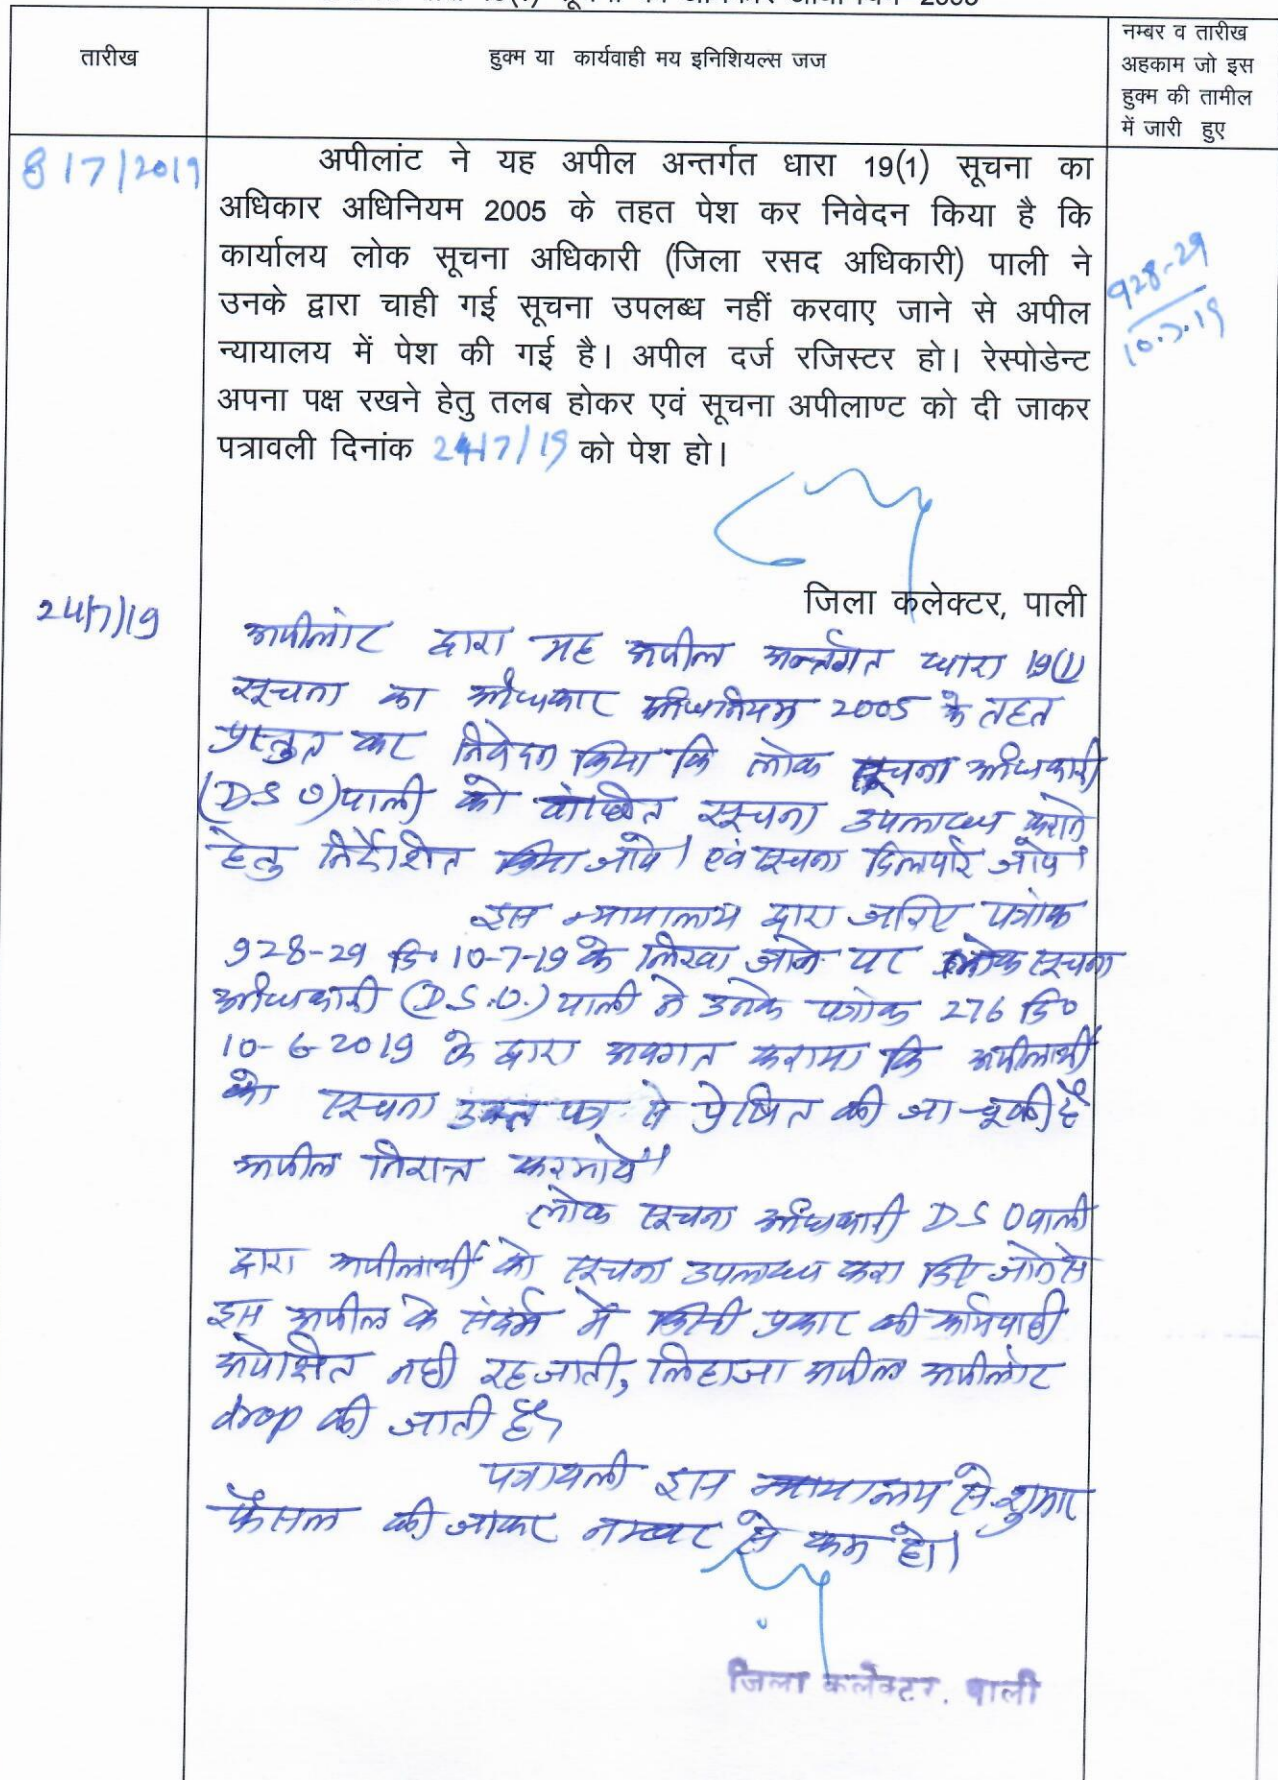 तारीख
हुक्म या कार्यवाही मय इनिशियल्स जज
नम्बर व तारीख
अहकाम जो इस
हुक्म की तामील
में जारी हुए
8/7/2019
अपीलांट ने यह अपील अन्तर्गत धारा 19(1) सूचना का
अधिकार अधिनियम 2005 के तहत पेश कर निवेदन किया है कि
कार्यालय लोक सूचना अधिकारी (जिला रसद अधिकारी) पाली ने
उनके द्वारा चाही गई सूचना उपलब्ध नहीं करवाए जाने से अपील
न्यायालय में पेश की गई है। अपील दर्ज रजिस्टर हो। रेस्पोडेन्ट
अपना पक्ष रखने हेतु तलब होकर एवं सूचना अपीलाण्ट को दी जाकर
पत्रावली दिनांक 24/7/19 को पेश हो।
928-29
10.7.19
जिला कलेक्टर, पाली
24/7/19
अपीलांट द्वारा यह अपील अर्न्तगत धारा 19(1)
सूचना का अधिकार अधिनियम 2005 के तहत
प्रस्तुत कर निवेदन किया कि लोक सूचना अधिकारी
(DSO) पाली को वांछित सूचना उपलब्ध कराने
हेतु निर्देशित किया जावे। एवं सूचना दिलवाई जावे।
इस न्यायालय द्वारा जरिए पत्रांक
928-29 दि॰ 10-7-19 के लिखा जाने पर लोक सूचना
अधिकारी (D.S.O.) पाली ने उनके पत्रांक 276 दि०
10-6-2019 के द्वारा अवगत कराया कि अपीलार्थी
को सूचना उक्त पत्र से प्रेषित की जा चूकी है
अपील निरस्त करमावें।
लोक सूचना अधिकारी DSO पाली
द्वारा अपीलार्थी को सूचना उपलब्ध करा दिए जाने से
इस अपील के संदर्भ में किसी प्रकार की कार्यवाही
अपेक्षित नही रह जाती, लिहाजा अपील अपीलांट
drop की जाती है।
पत्रावली इस न्यायालय से शुमार
फैसल की जाकर नम्बर से कम हो।
जिला कलेक्टर, पाली